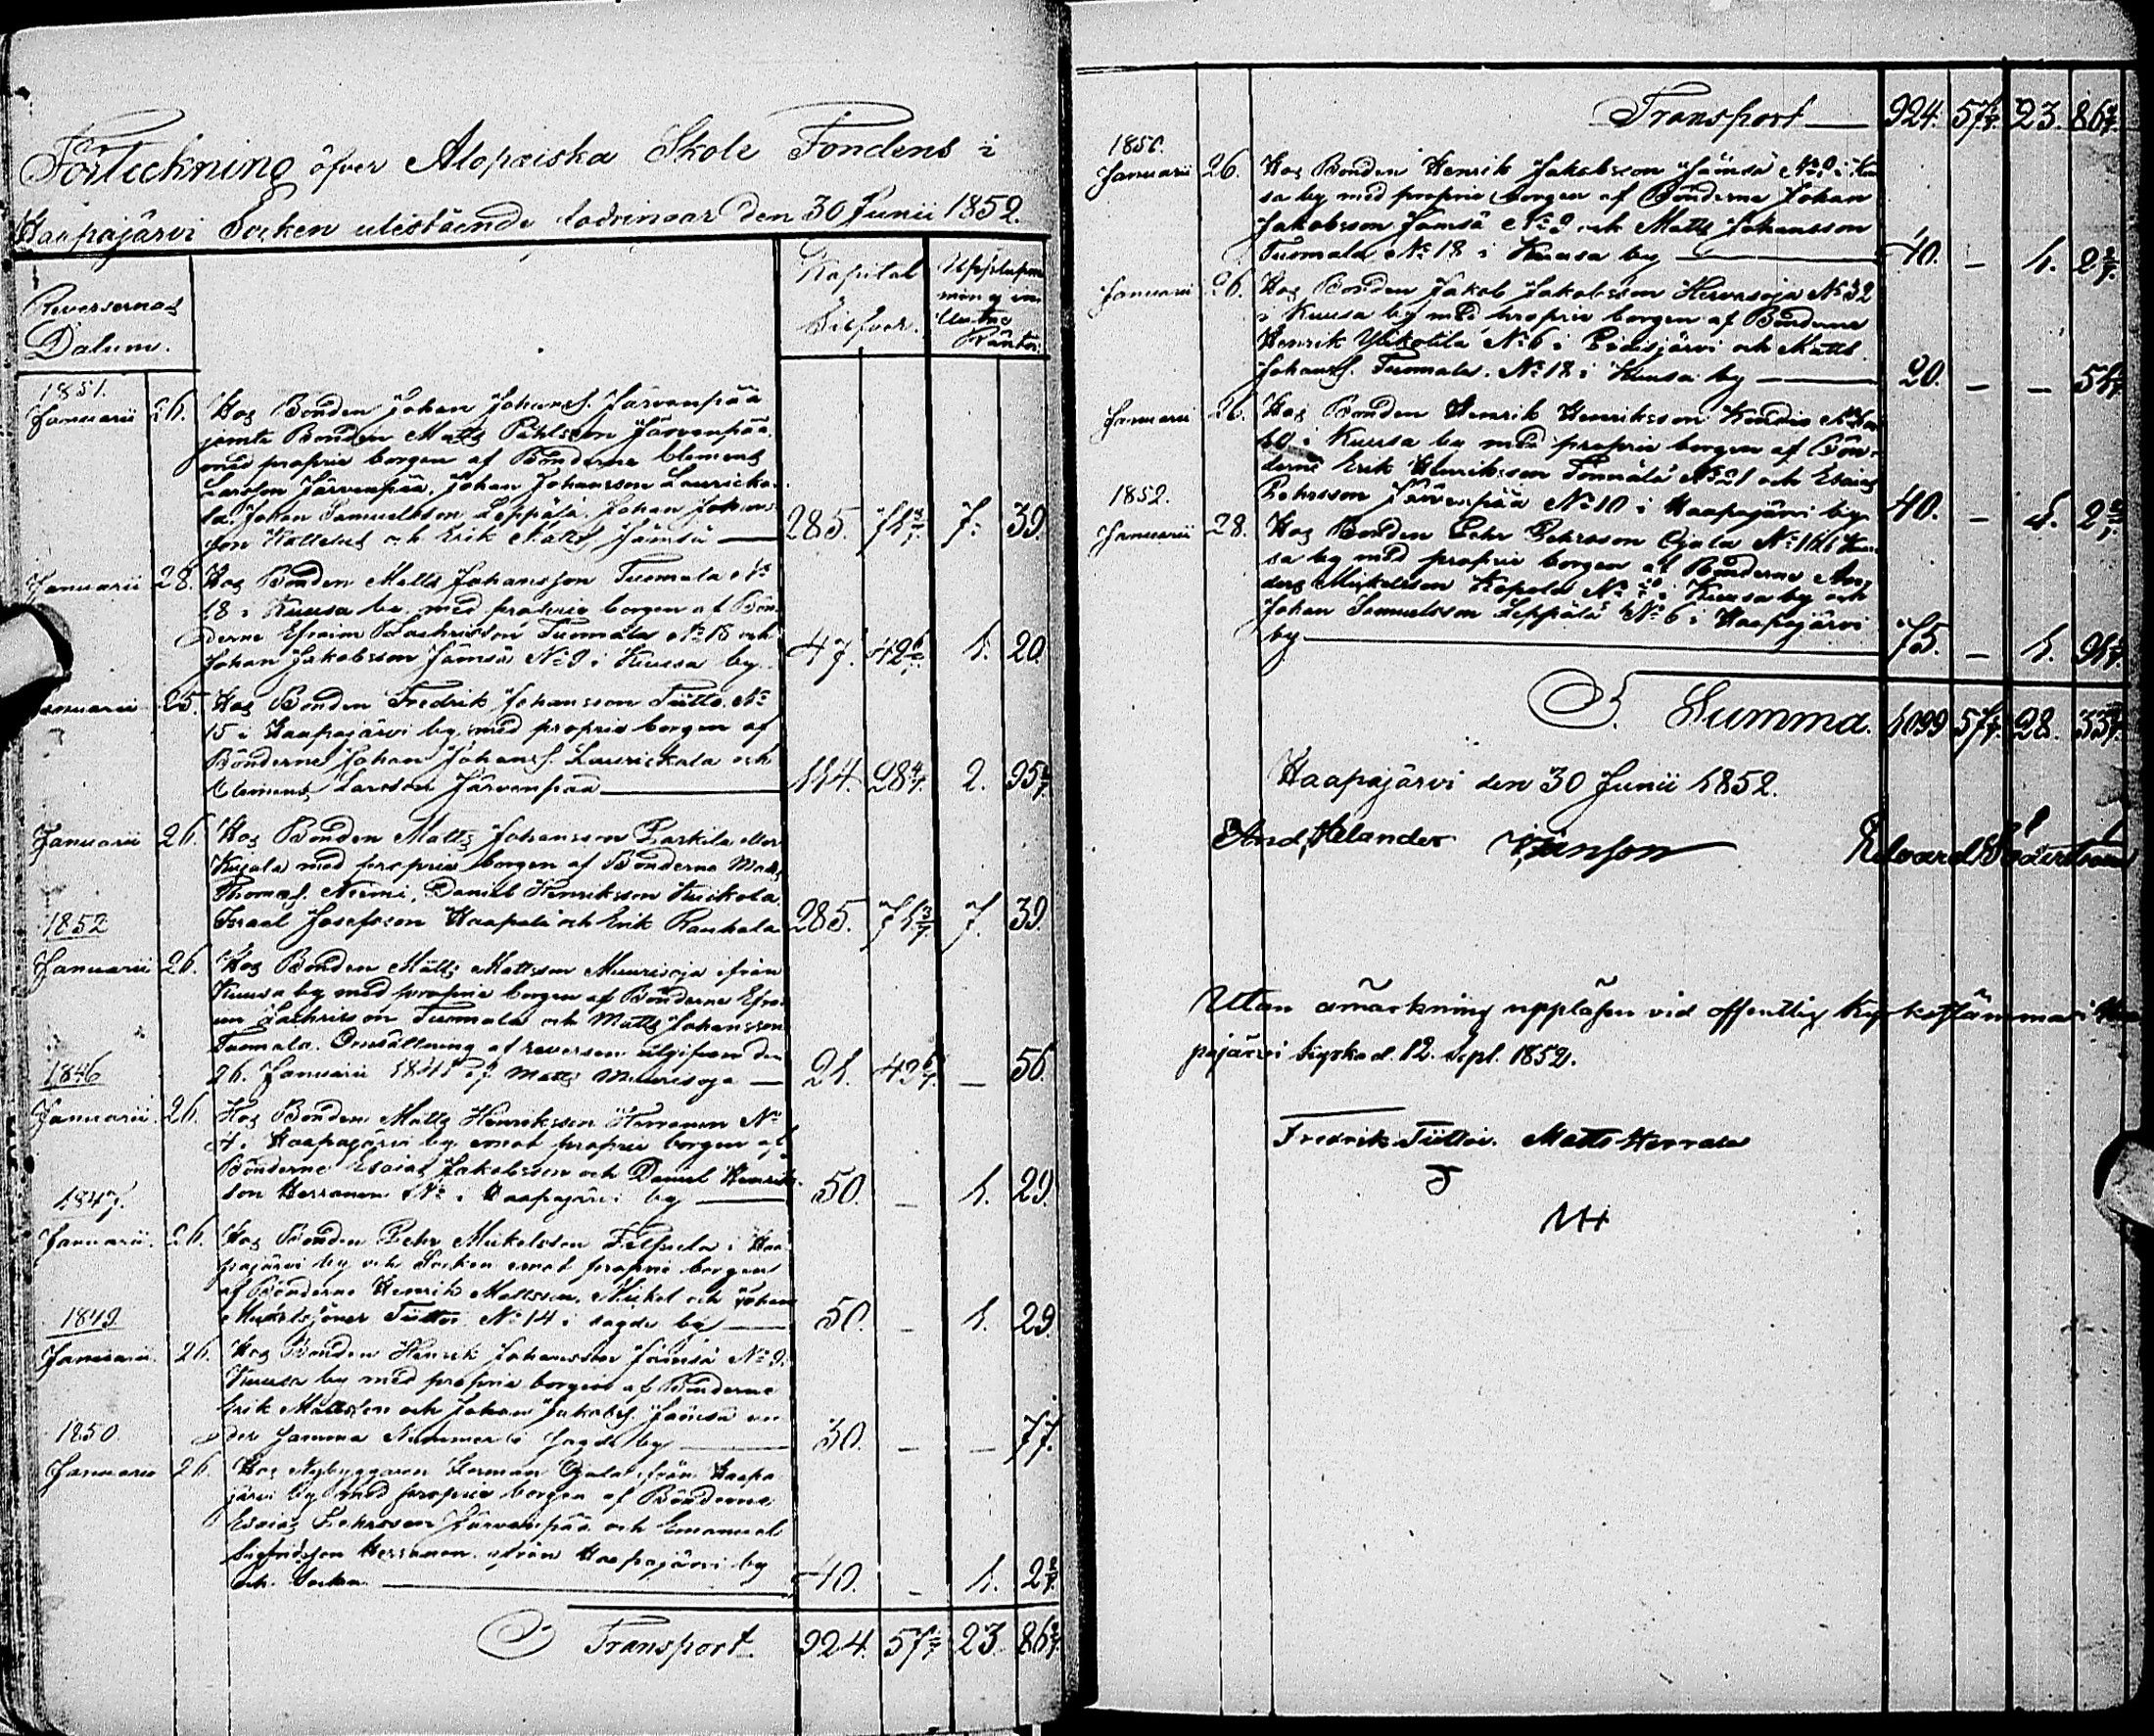 Förteckning öfver Alopæiska Skole Fondens i
Haapajärvi Socken utestående fodringar den 30 Junii 1852.
Reversernas Datum.
Kapital Silfver.
Upplupen men ej inlutne Räntor.
1851.
Januarii 26. Hos Bonden Johan Johanss. Järvenpää
jemte Bonden Matts Påhlsson Järvenpää
med proprie borgen af Bönderne Clemens
Larsson Järvenpää, Johan Johansson Lauricka-
la, Johan Samuelsson Leppälä, Johan Johans-
son och Erik Matts. Jämsä — 285. 71 3/7. 7. 39.
Januarii 28. Hos Bonden Matts Johansson Tuomala No
18 i Kuusa by, med proprie borgen af Bön-
derne Efraim Zachrisson Tuomala No 18 och
Johan Jakobsson Jämsä No 9 i Kuusa by. 47. 42 6/7. 1. 20.
Januarii 25. Hos Bonden Fredrik Johansson Tiitto No
15 i Haapajärvi by, med proprie borgen af
Bönderne Johan Johanss. Laurickala och
Clemens Larsson Järvenpää — 114. 28 4/7. 2. 95 4/7.
Januarii 26. Hos Bonden Matts Johansson
med proprie borgen af Bönderne Matts
Thomas. Niemi, Daniel Henriksson Kuickola
Israel Josefsson Haapala och Erik Rauhala 285. 71 3/7. 7. 39.
1852
Januarii 26. Hos Bonden Matts Mattsson Muurisoja ifrån
Kuusa by med proprie borgen af Bönderne Efra-
im Zachrisson Tuomala och Matts Johansson
Tuomala. Omsättning af reversen utgifven den
26. Januarii 1841 af Matts Muurisoja — 21. 42 6/7. — 56.
1846
Januarii 26. Hos Bonden Matts Henriksson Herranen No
4 i Haapajärvi by emot proprie borgen af
Bönderne Esaias Jakobsson och Daniel Henriks-
son Herranen No i Haapajärvi by — 50. — 1. 29.
1847.
Januarii 26. Hos Bonden Pehr Mickelsson i Haa-
pajärvi by och Socken emot proprie borgen
af Bönderne Henrik Mattsson, Mickel och Johan
Mickelssöner Tiitto No 14 i sagde by — 50. — 1. 29.
1849
Januarii 26. Hos Bonden Henrik Johansson Jämsä No 9
Kuusa by med proprie borgen af Bönderne
Erik Mattsson och Johan Jakobss. Jämsä un-
der samma Nummer i sagde by — 30. — — 77.
1850
Januarii 26. Hos Nybyggaren Herman Ojala ifrån Haapa-
järvi by med proprie borgen af Bönderne
Esaias Pehrsson Järvenpää och Emanuel
Sigfridsson Herranen ifrån Haapajärvi by
och Socken — 40. — 1. 2 2/7.
Transport. 924. 57 1/7. 23. 86 2/7.
Transport — 924. 57 1/7. 23. 86 2/7.
1850.
Januarii 26. Hos Bonden Henrik Jakobsson Jämsä No 9 i Kuu-
sa by med proprie borgen af Bönderne Johan
Jakobsson Jämsä No 9 och Matts Johansson
Tuomala No 18 i Kuusa by — 40. — 1. 2 2/7.
Januarii 26. Hos Bonden Jakob Jakobsson Hervasoja No 32
i Kuusa by med proprie borgen af Bönderne
Henrik Ylikotila No 6 i Pidisjärvi och Matts
Johanss. Tuomala No 18 i Kuusa by — 20. — — 51 1/7.
Januarii 26. Hos Bonden Henrik Henriksson
20 i Kuusa by med proprie borgen af Bön-
derne Erik Henriksson No 21 och Esaias
Pehrsson Järvenpää No 10 i Haapajärvi by 40. — 1. 2 2/7.
1852.
Januarii 28. Hos Bonden Pehr Pehrsson Ojala No 16 i Kuu-
sa by med proprie borgen af Bönderne An-
ders Mickelsson Kopola No i Kuusa by och
Johan Samuelsson Leppälä No 6 i Haapajärvi
by — 75. — 1. 91 1/7.
S. Summa. 1099 57 1/7. 28. 33 2/7.
Haapajärvi den 30 Junii 1852.
And. Helander Edvard Söderström
Utan anmärkning uppläsen vid offentlig Kyrkostämma i Haa-
pajärvi kyrka d. 12. Sept. 1852.
Fredrik Tiitto. Matts Herrala
MH